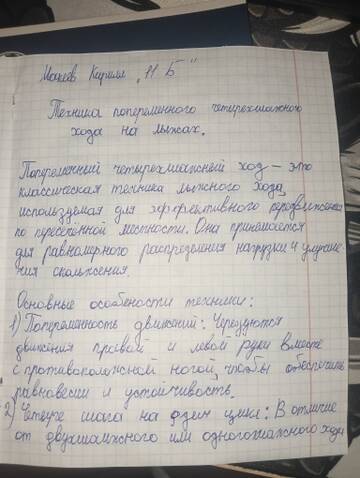 Мокеев Кирилл „11 Б"
Техника попеременного четырехшажного
хода на лыжах.
Попеременный четырехшажный ход – это
классическая техника лыжного хода,
используемая для эффективного передвижения
по пересеченной местности. Она применяется
для равномерного распределения нагрузки и улучше-
ния скольжения.
Основные особености техники:
1) Попеременность движений: Чередуются
движения правой и левой руки вместе
с противоположной ногой, чтобы обеспечить
равновесие и устойчивость.
2) Четыре шага на один цикл: В отличие
от двухшажного или одношажного хода